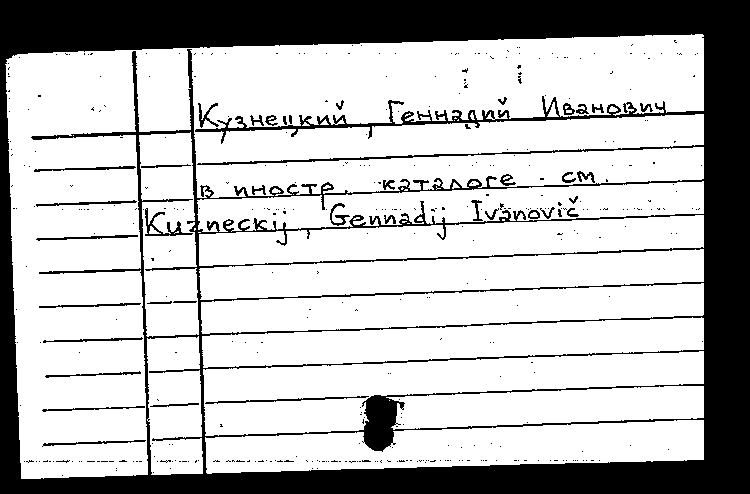 Кузнецкий, Геннадий Иванович
в иностр. каталоге - см.
Kuzneckij, Gennadij Ivanovič